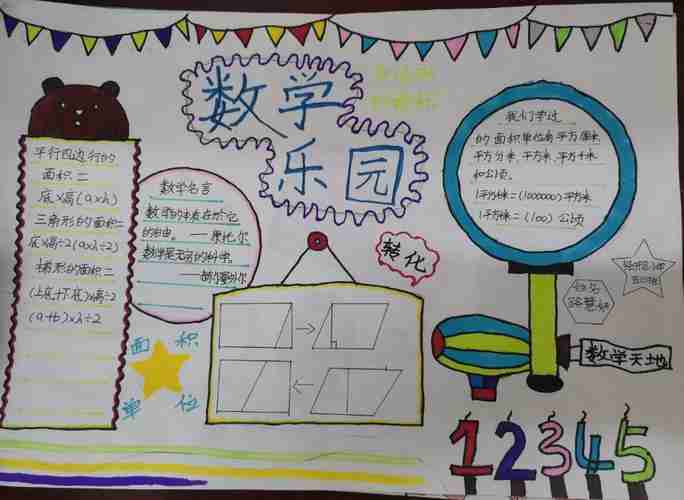 数学
乐园
平行四边行的
面积=
底×高(a×h)
三角形的面积=
底×高÷2(a×h÷2)
梯形的面积=
(上底+下底)×高÷2
(a+b)×h÷2
数学名言
数学的本质在於它
的自由。——康托尔
数学是无穷的科学
——赫尔曼外尔
面积
单位
转化
我们学过
的面积单位有平方厘米
平方分米、平方米、平方千米
和公顷。
1平方千米=(1000000)平方米
1平方千米=(100)公顷
数学天地
1 2 3 4 5